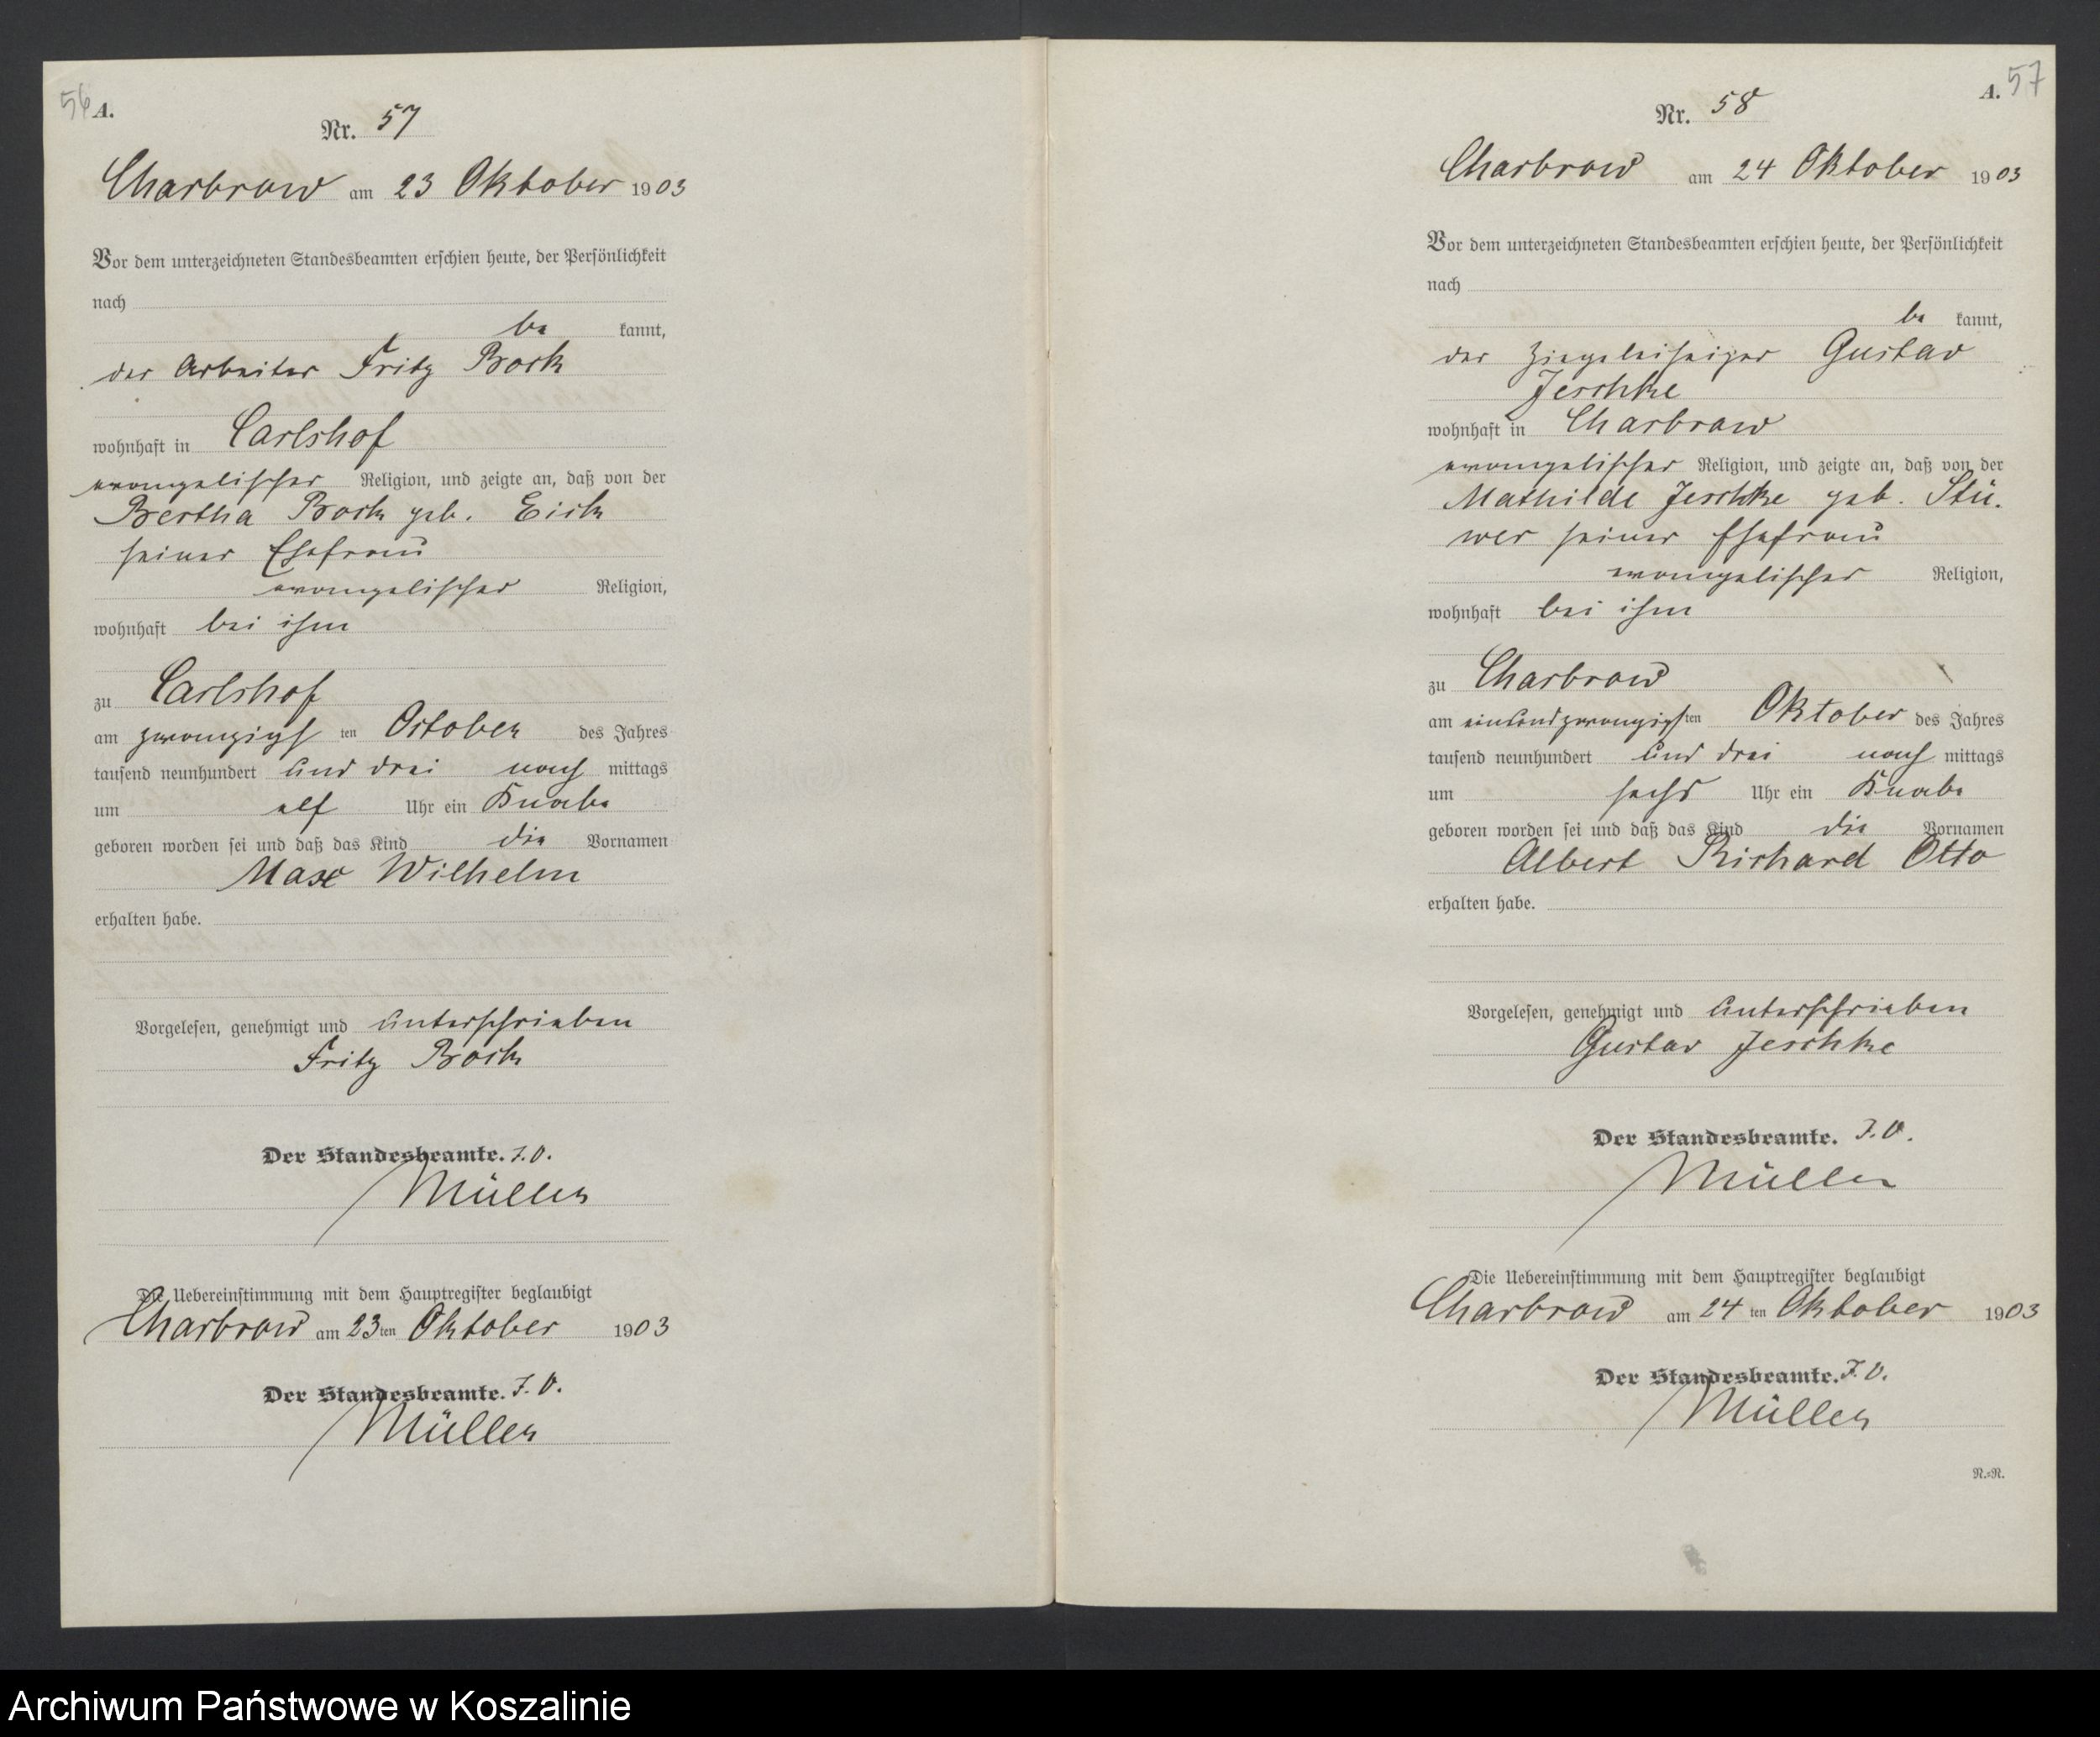 56 A.
Nr. 57
Charbrow am 23 Oktober 1903
Vor dem unterzeichneten Standesbeamten erschien heute, der Persönlichkeit
nach
be kannt,
der Arbeiter Fritz Bock
wohnhaft in Carlshof
evangelischer Religion, und zeigte an, daß von der
Bertha Bock geb. Eick
seiner Ehefrau
evangelischer Religion,
wohnhaft bei ihm
zu Carlshof
am zwanzigsten October des Jahres
tausend neunhundert und drei nach mittags
um elf Uhr ein Knabe
geboren worden sei und daß das Kind die Vornamen
Max Wilhelm
erhalten habe.
Vorgelesen, genehmigt und unterschrieben
Fritz Bock
Der Standesbeamte. J. V.
Müller
Die Uebereinstimmung mit dem Hauptregister beglaubigt
Charbrow am 23ten Oktober 1903
Der Standesbeamte. J. V.
Müller
A. 57
Nr. 58
Charbrow am 24 Oktober 1903
Vor dem unterzeichneten Standesbeamten erschien heute, der Persönlichkeit
nach
be kannt,
der Gustav
Jeschke
wohnhaft in Charbrow
evangelischer Religion, und zeigte an, daß von der
Mathilde Jeschke geb. Stü-
wer seiner Ehefrau
evangelischer Religion,
wohnhaft bei ihm
zu Charbrow
am einundzwanzigsten Oktober des Jahres
tausend neunhundert und drei nach mittags
um sechs Uhr ein Knabe
geboren worden sei und daß das Kind die Vornamen
Albert Richard Otto
erhalten habe.
Vorgelesen, genehmigt und unterschrieben
Gustav Jeschke
Der Standesbeamte. J. V.
Müller
Die Uebereinstimmung mit dem Hauptregister beglaubigt
Charbrow am 24 ten Oktober 1903
Der Standesbeamte. J. V.
Müller
N.=N.
Archiwum Państwowe w Koszalinie